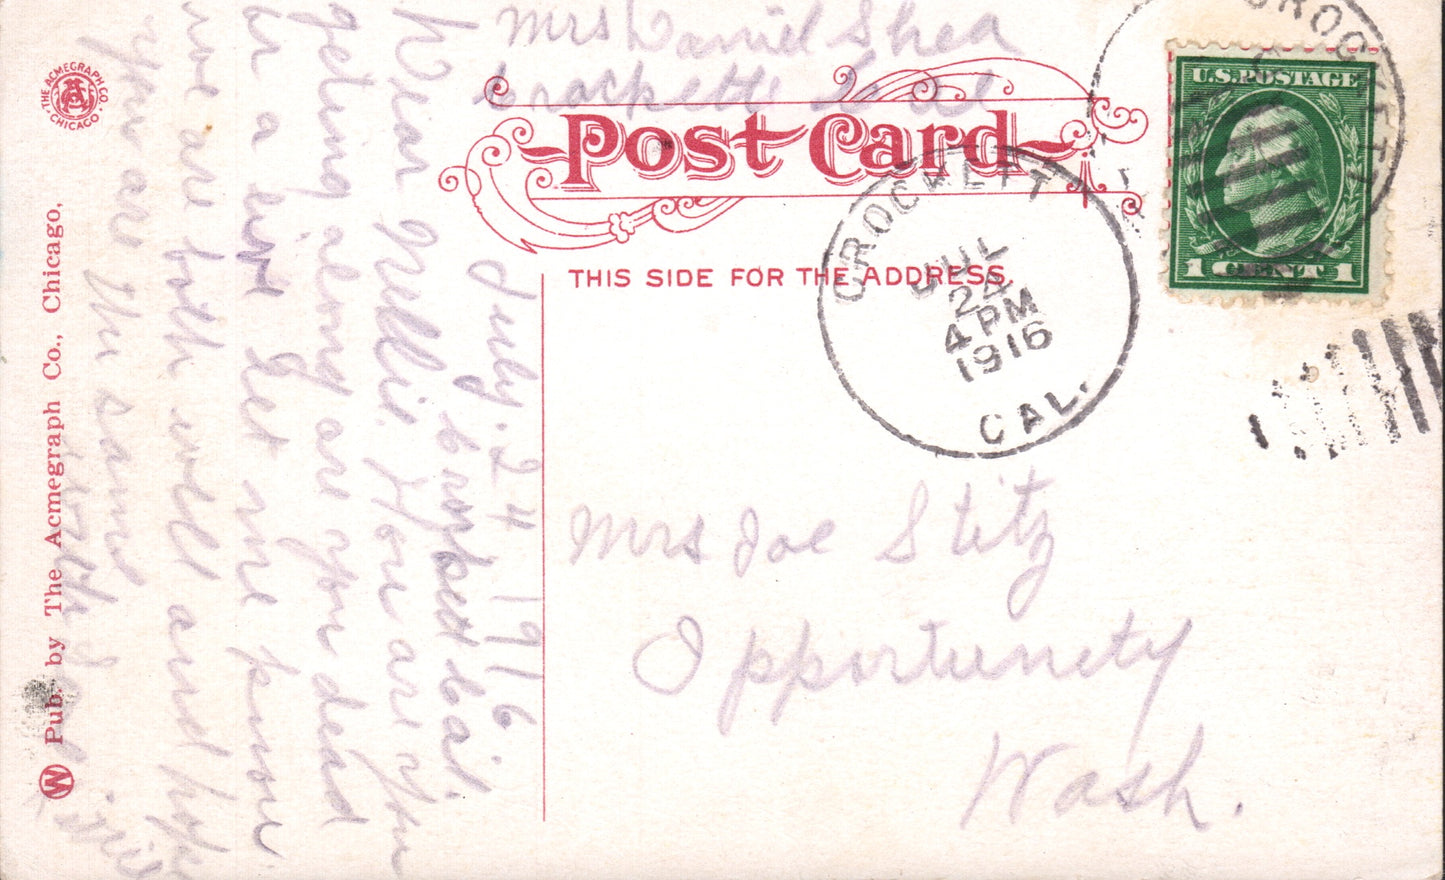 Mrs Daniel Shea
Crockette Cal
Post Card
THIS SIDE FOR THE ADDRESS.
U.S. POSTAGE
1 CENT 1
CROCKETT
CROCKETT
JUL
24
4 PM
1916
CAL.
July. 24 1916
Crockett Cal.
Dear Nellie. How are you
geting along are you dead
or a live Let me know
we are both well and hope
you are the same
Mrs Joe Stitz
Opportunety
Wash.
THE ACMEGRAPH CO.
CHICAGO
W Pub. by The Acmegraph Co., Chicago,